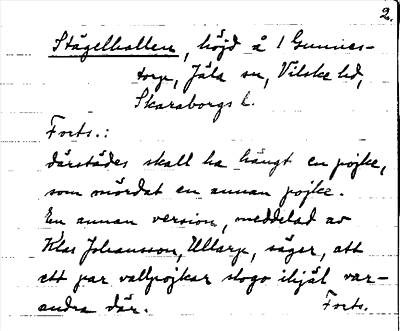 2.
Stägelhallen, höjd å 1 Gunnes-
torp, Jäla sn, Vilske hd,
Skaraborgs l.
Forts.:
därstädes skall ha hängt en pojke,
som mördat en annan pojke.
En annan version, meddelad av
Klas Johansson, Ullarp, säger, att
ett par vallpojkar slogo ihjäl var-
andra där. Forts.